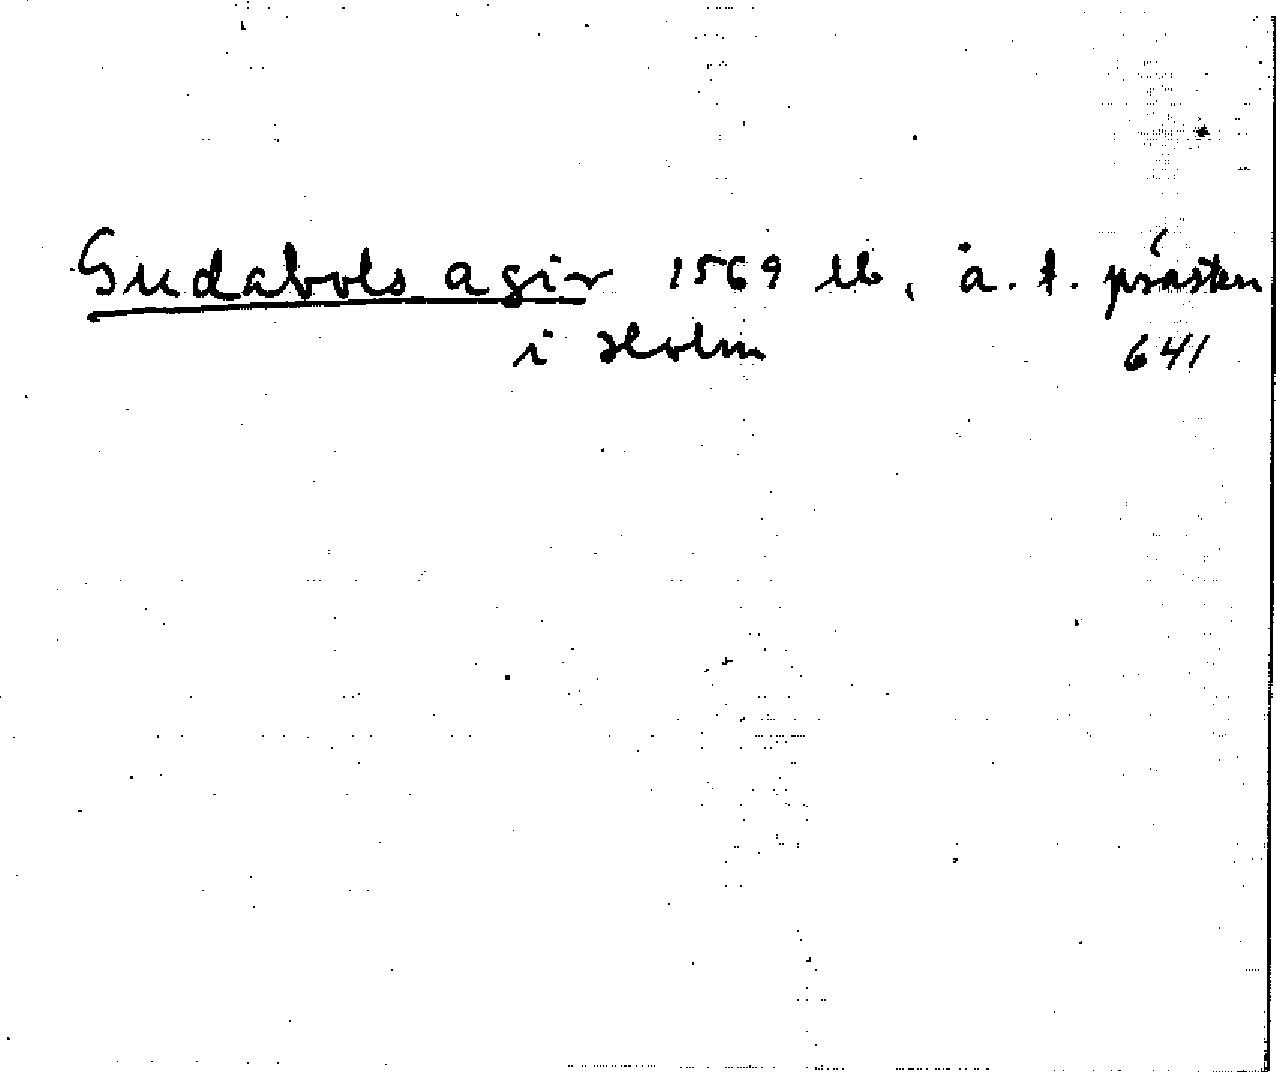 Gudabols agir 1569 lb, å. t. prästen
i Holm 641